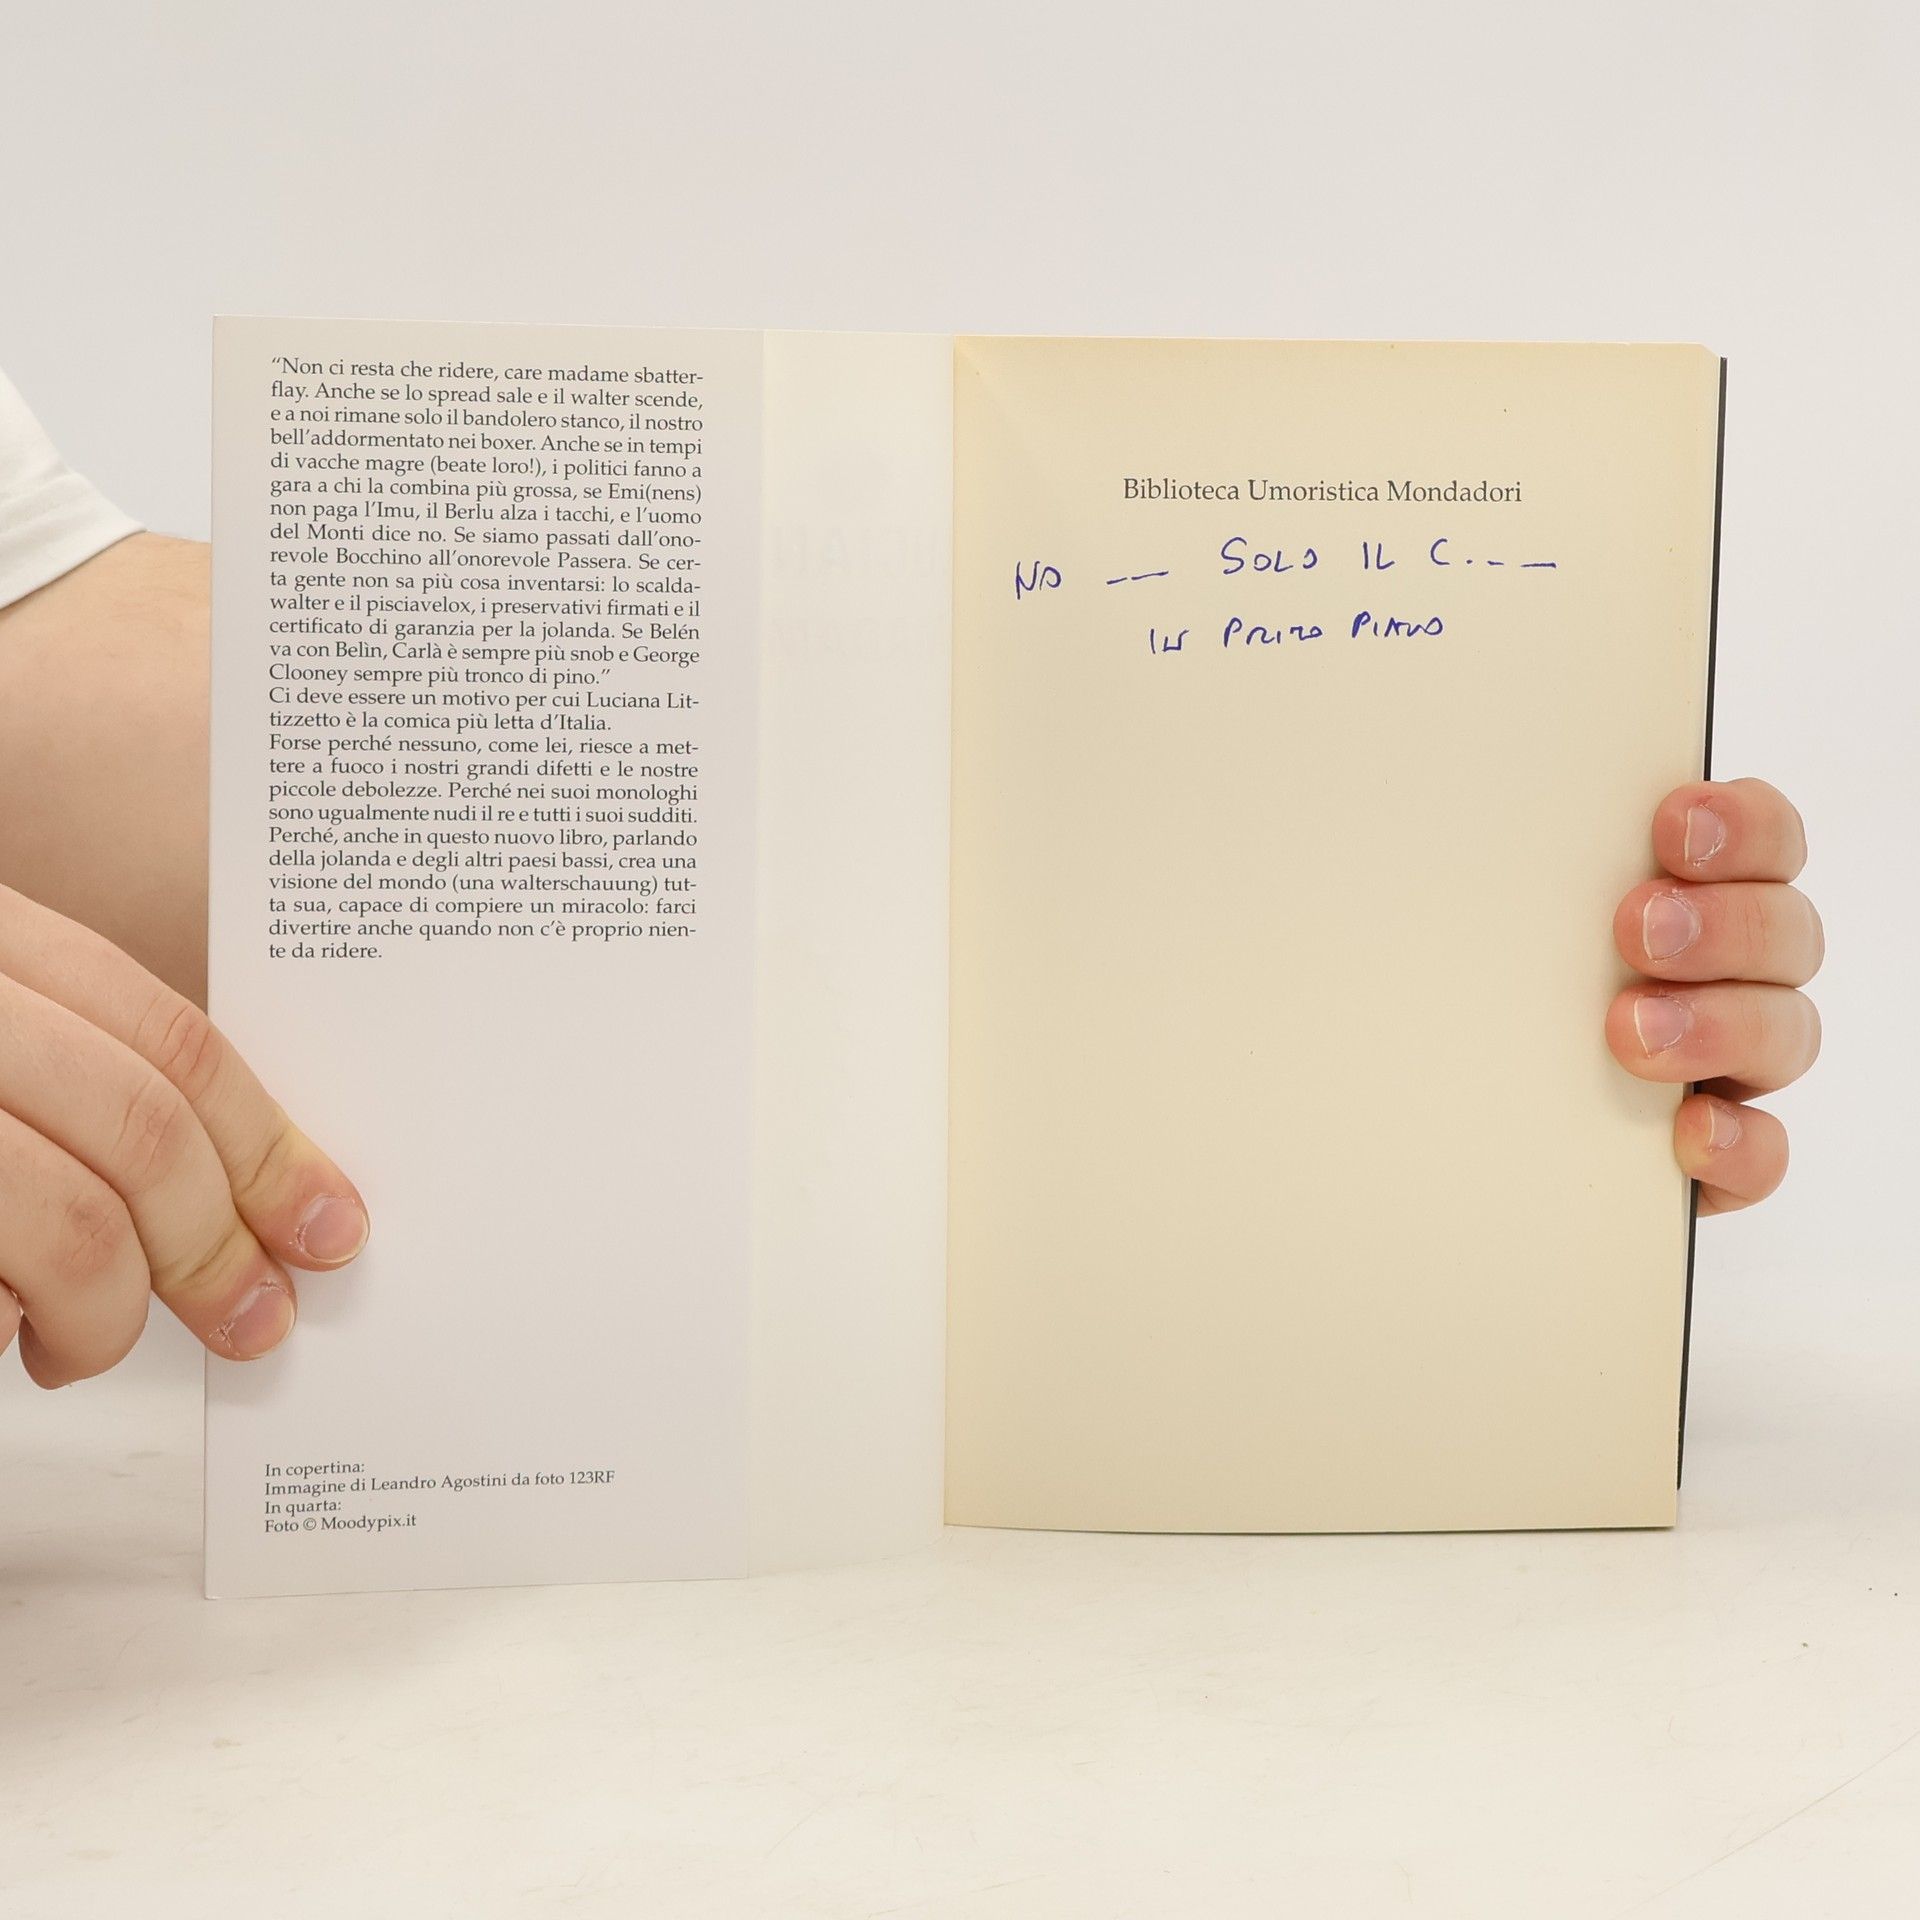 “Non ci resta che ridere, care madame sbatter-
flay. Anche se lo spread sale e il walter scende,
e a noi rimane solo il bandolero stanco, il nostro
bell’addormentato nei boxer. Anche se in tempi
di vacche magre (beate loro!), i politici fanno a
gara a chi la combina più grossa, se Emi(nens)
non paga l’Imu, il Berlu alza i tacchi, e l’uomo
del Monti dice no. Se siamo passati dall’ono-
revole Bocchino all’onorevole Passera. Se cer-
ta gente non sa più cosa inventarsi: lo scalda-
walter e il pisciavelox, i preservativi firmati e il
certificato di garanzia per la jolanda. Se Belén
va con Belìn, Carlà è sempre più snob e George
Clooney sempre più tronco di pino.”
Ci deve essere un motivo per cui Luciana Lit-
tizzetto è la comica più letta d’Italia.
Forse perché nessuno, come lei, riesce a met-
tere a fuoco i nostri grandi difetti e le nostre
piccole debolezze. Perché nei suoi monologhi
sono ugualmente nudi il re e tutti i suoi sudditi.
Perché, anche in questo nuovo libro, parlando
della jolanda e degli altri paesi bassi, crea una
visione del mondo (una walterschauung) tut-
ta sua, capace di compiere un miracolo: farci
divertire anche quando non c’è proprio nien-
te da ridere.
In copertina:
Immagine di Leandro Agostini da foto 123RF
In quarta:
Foto © Moodypix.it
Biblioteca Umoristica Mondadori
NO -- SOLO IL C. - - —
IN PRIMO PIANO